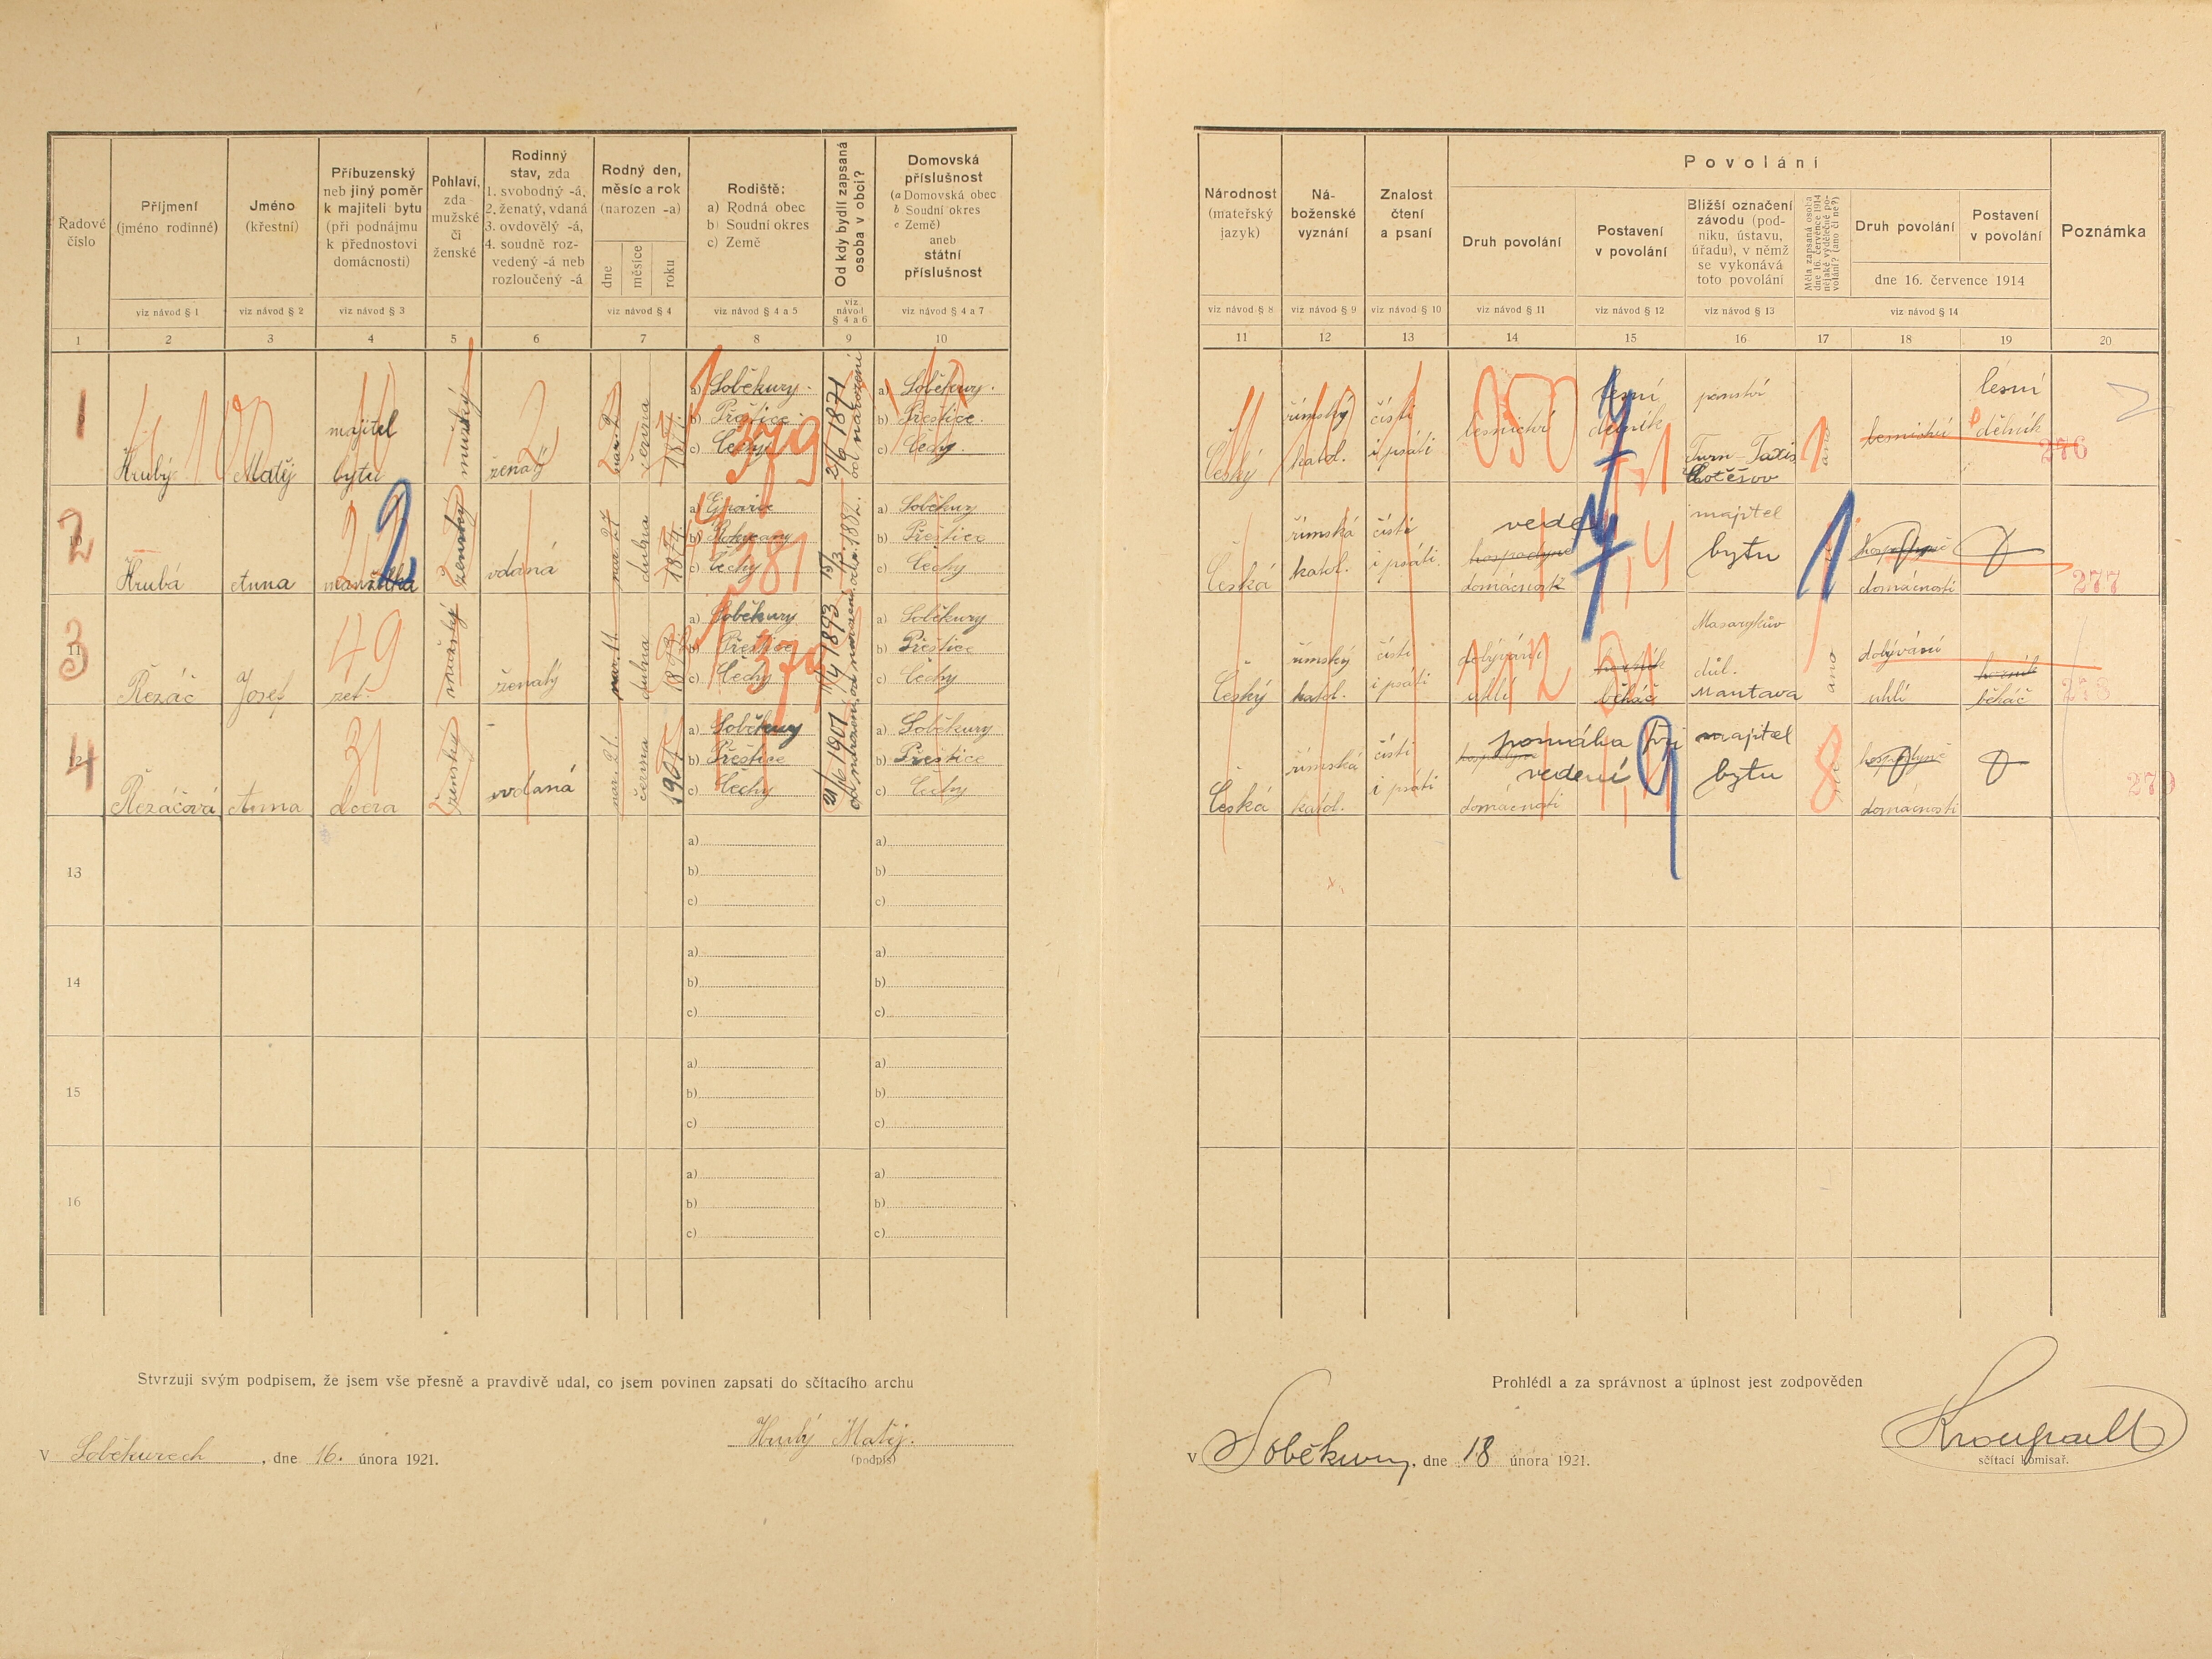 Řadové
číslo
Příjmení
(jméno rodinné)
Jméno
(křestní)
Příbuzenský
neb jiný poměr
k majiteli bytu
(při podnájmu
k přednostovi
domácnosti)
Pohlaví,
zda
mužské
či
ženské
Rodinný
stav, zda
1. svobodný -á,
2. ženatý, vdaná
3. ovdovělý -á,
4. soudně roz-
vedený -á neb
rozloučený -á
Rodný den,
měsíc a rok
(narozen -a)
dne
měsíce
roku
Rodiště:
a) Rodná obec
b) Soudní okres
c) Země
Od kdy bydlí zapsaná
osoba v obci?
Domovská
příslušnost
(a Domovská obec
b Soudní okres
c Země)
aneb
státní
příslušnost
viz návod § 1
viz návod § 2
viz návod § 3
viz návod § 4
viz návod § 4 a 5
viz
návod
§ 4 a 6
viz návod § 4 a 7
1 2 3 4 5 6 7 8 9 10
Národnost
(mateřský
jazyk)
Ná-
boženské
vyznání
Znalost
čtení
a psaní
Povolání
Druh povolání
Postavení
v povolání
Bližší označení
závodu (pod-
niku, ústavu,
úřadu), v němž
se vykonává
toto povolání
Měla zapsaná osoba
dne 16. července 1914
nějaké výdělečné po-
volání? (ano či ne?)
Druh povolání
Postavení
v povolání
dne 16. července 1914
Poznámka
viz návod § 8
viz návod § 9
viz návod § 10
viz návod § 11
viz návod § 12
viz návod § 13
viz návod § 14
11 12 13 14 15 16 17 18 19 20
1
Hrubý
Matěj
majitel
bytu
mužský
ženatý
2
června
1871
a) Soběkury
b) Přeštice
c) Čechy
379
2/6 1871
od narození
a) Soběkury
b) Přeštice
c) Čechy
Český
římský
katol.
čísti
i psáti
lesnictví
050
lesní
dělník
panství
Turn-Taxis
Chotěšov
ano
lesnictví
lesní
dělník
276
2
Hrubá
Anna
manželka
ženský
vdaná
nar. 27
dubna
a)
b) Rokycany
c) Čechy
381
15/3
1882
a) Soběkury
b) Přeštice
c) Čechy
Česká
římská
katol.
čísti
i psáti
vede
hospodyně
domácnost
majitel
bytu
1
hospodyně
domácnosti
277
3
11
Řezáč
Josef
zeť
49
mužský
ženatý
nar. 11
dubna
1893
a) Soběkury
b) Přeštice
c) Čechy
379
11/4 1893
od narození
a) Soběkury
b) Přeštice
c) Čechy
Český
římský
katol.
čísti
i psáti
dobývání
uhlí
běhač
Masarykův
důl.
Mantava
ano
dobývání
uhlí
běhač
278
4
12
Řezáčová
Anna
dcera
31
ženský
vdaná
nar. 21.
června
1901
a) Soběkury
b) Přeštice
c) Čechy
21/6 1901
od narození
a) Soběkury
b) Přeštice
c) Čechy
Česká
římská
katol.
čísti
i psáti
pomáha při
hospodyně
vedení
domácnosti
9
majitel
bytu
8
hospodyně
domácnosti
279
13
a)
b)
c)
a)
b)
c)
14
a)
b)
c)
a)
b)
c)
15
a)
b)
c)
a)
b)
c)
16
a)
b)
c)
a)
b)
c)
Stvrzuji svým podpisem, že jsem vše přesně a pravdivě udal, co jsem povinen zapsati do sčítacího archu
Hrubý Matěj.
(podpis)
V Soběkurech, dne 16. února 1921.
Prohlédl a za správnost a úplnost jest zodpověden
V Soběkury, dne 18 února 1921.
sčítací komisař.